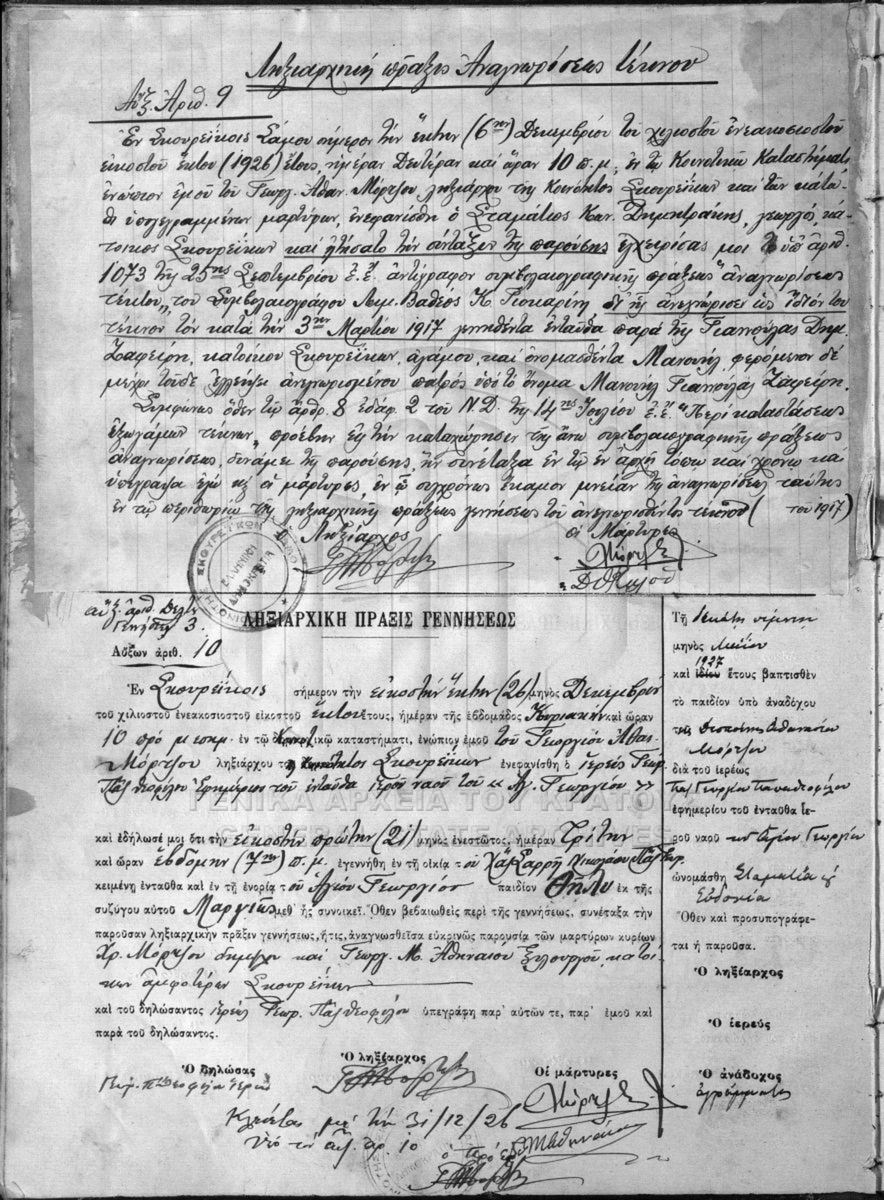 Ληξιαρχική πρᾶξις Ἀναγνωρίσεως τέκνου
Αὔξ. Ἀριθ. 9
Ἐν Σκουρεΐκοις Σάμου σήμερον τὴν ἕκτην (6ην) Δεκεμβρίου τοῦ χιλιοστοῦ ἐνεακοσιοστοῦ
εἰκοστοῦ ἕκτου (1926) ἔτους, ἡμέραν Δευτέραν καὶ ὥραν 10 π.μ. ἐν τῷ Κοινοτικῷ Καταστήματι
ἐνώπιον ἐμοῦ τοῦ Γεωργ. Ἀθαν. Μόρτζου ληξιάρχου τῆς Κοινότητος Σκουρεΐκων καὶ τῶν κάτω-
θι ὑπογεγραμμένων μαρτύρων, ἐνεφανίσθη ὁ Σταμάτιος Κων. Δημητράκης, γεωργός, κά-
τοικος Σκουρεΐκων καὶ ᾐτήσατο τὴν σύνταξιν τῆς παρούσης ἐγχειρίσας μοι τὸ ὑπ' ἀριθ.
1073 τῆς 25ης Σεπτεμβρίου ἐ.ἔ. ἀντίγραφον συμβολαιογραφικῆς πράξεως "ἀναγνωρίσεως
τέκνου" τοῦ Συμβολαιογράφου Λιμ. Βαθέος Κ. Γιοκαρίνη δι' ἧς ἀνεγνώρισεν ὡς ἴδιόν του
τέκνον τὸν κατὰ τὴν 3ην Μαρτίου 1917 γεννηθέντα ἐνταῦθα παρὰ τῆς Γιαννούλας Δημ.
Ζαφείρη, κατοίκου Σκουρεΐκων, ἀγάμου, καὶ ὀνομασθέντα Μανουήλ, φερόμενον δὲ
μέχρι τοῦδε ἐλλείψει ἀνεγνωρισμένου πατρὸς ὑπὸ τὸ ὄνομα Μανουὴλ Γιαννούλας Ζαφείρη.
Συμφώνως ὅθεν τῷ ἄρθρ. 8 ἐδάφ. 2 τοῦ Ν.Δ. τῆς 14ης Ἰουλίου ἐ.ἔ. "Περὶ καταστάσεως
ἐξωγάμων τέκνων" προέβην εἰς τὴν καταχώρησιν τῆς ἄνω συμβολαιογραφικῆς πράξεως
ἀναγνωρίσεως, δυνάμει τῆς παρούσης, ἣν συνέταξα ἐν τῷ ἐν ἀρχῇ τόπῳ καὶ χρόνῳ καὶ
ὑπέγραψα ἐγὼ καὶ οἱ μάρτυρες, ἐν ᾧ συγχρόνως ἔκαμον μνείαν τῆς ἀναγνωρίσεως ταύτης
ἐν τῷ περιθωρίῳ τῆς ληξιαρχικῆς πράξεως γεννήσεως τοῦ ἀναγνωρισθέντος τέκνου ( τοῦ 1917)
Ὁ Ληξίαρχος
οἱ Μάρτυρες
ΕΛΛΗΝΙΚΗ ΔΗΜΟΚΡΑΤΙΑ
αὔξ. ἀριθ. Δελτ.
Γεννήσ. 3.
ΛΗΞΙΑΡΧΙΚΗ ΠΡΑΞΙΣ ΓΕΝΝΗΣΕΩΣ
Αὔξων ἀριθ. 10
Ἐν Σκουρεΐκοις σήμερον τὴν εἰκοστὴν ἕκτην (26) μηνὸς Δεκεμβρίου
τοῦ χιλιοστοῦ ἐνεακοσιοστοῦ εἰκοστοῦ ἕκτου ἔτους, ἡμέραν τῆς ἑβδομάδος Κυριακὴν καὶ ὥραν
10 πρὸ μεσημ. ἐν τῷ Κοινοτικῷ καταστήματι, ἐνώπιον ἐμοῦ τοῦ Γεωργίου Ἀθαν.
Μόρτζου ληξιάρχου τῆς Κοινότητος Σκουρεΐκων ἐνεφανίσθη ὁ ἱερεὺς Γεώρ.
Παπᾶ Θεοφίλου Ἐφημέριος τοῦ ἐνταῦθα ἱεροῦ ναοῦ τοῦ "Ἁγ. Γεωργίου"
ΓΕΝΙΚΑ ΑΡΧΕΙΑ ΤΟΥ ΚΡΑΤΟΥΣ
GENERAL STATE ARCHIVES
καὶ ἐδήλωσέ μοι ὅτι τὴν εἰκοστὴν πρώτην (21) μηνὸς ἐνεστῶτος, ἡμέραν Τρίτην
καὶ ὥραν ἑβδόμην (7ην) π.μ. ἐγεννήθη ἐν τῇ οἰκίᾳ τοῦ
κειμένῃ ἐνταῦθα καὶ ἐν τῇ ἐνορίᾳ τοῦ Ἁγίου Γεωργίου παιδίον Θῆλυ ἐκ τῆς
συζύγου αὐτοῦ μεθ' ἧς συνοικεῖ. Ὅθεν βεβαιωθεὶς περὶ τῆς γεννήσεως, συνέταξα τὴν
παροῦσαν ληξιαρχικὴν πρᾶξιν γεννήσεως, ἥτις, ἀναγνωσθεῖσα εὐκρινῶς παρουσίᾳ τῶν μαρτύρων κυρίων
Χρ. Μόρτζου καὶ Γεωργ. Μ. Ἀθηναίου ξυλουργοῦ, κατοί-
κων ἀμφοτέρων Σκουρεΐκων
καὶ τοῦ δηλώσαντος ἱερέως Γεωρ. Παπᾶ Θεοφίλου ὑπεγράφη παρ' αὐτῶν τε, παρ' ἐμοῦ καὶ
παρὰ τοῦ δηλώσαντος.
Ὁ δηλώσας
Ὁ ληξίαρχος
Οἱ μάρτυρες
31/12/26
Τῇ δεκάτῃ πέμπτῃ
μηνὸς Μαΐου
1927
καὶ ἰδίου ἔτους βαπτισθὲν
τὸ παιδίον ὑπὸ ἀναδόχου
τῆς Δεσποίνης Ἀθανασίου
Μόρτζου
διὰ τοῦ ἱερέως
Γεωργίου Παπαθεοφίλου
ἐφημερίου τοῦ ἐνταῦθα ἱε-
ροῦ ναοῦ τοῦ Ἁγίου Γεωργίου
ὠνομάσθη Σταματία ἢ
Εὐδοκία
Ὅθεν καὶ προσυπογράφε-
ται ἡ παροῦσα.
Ὁ ληξίαρχος
Ὁ ἱερεύς
Ὁ ἀνάδοχος
ἀγράμματος